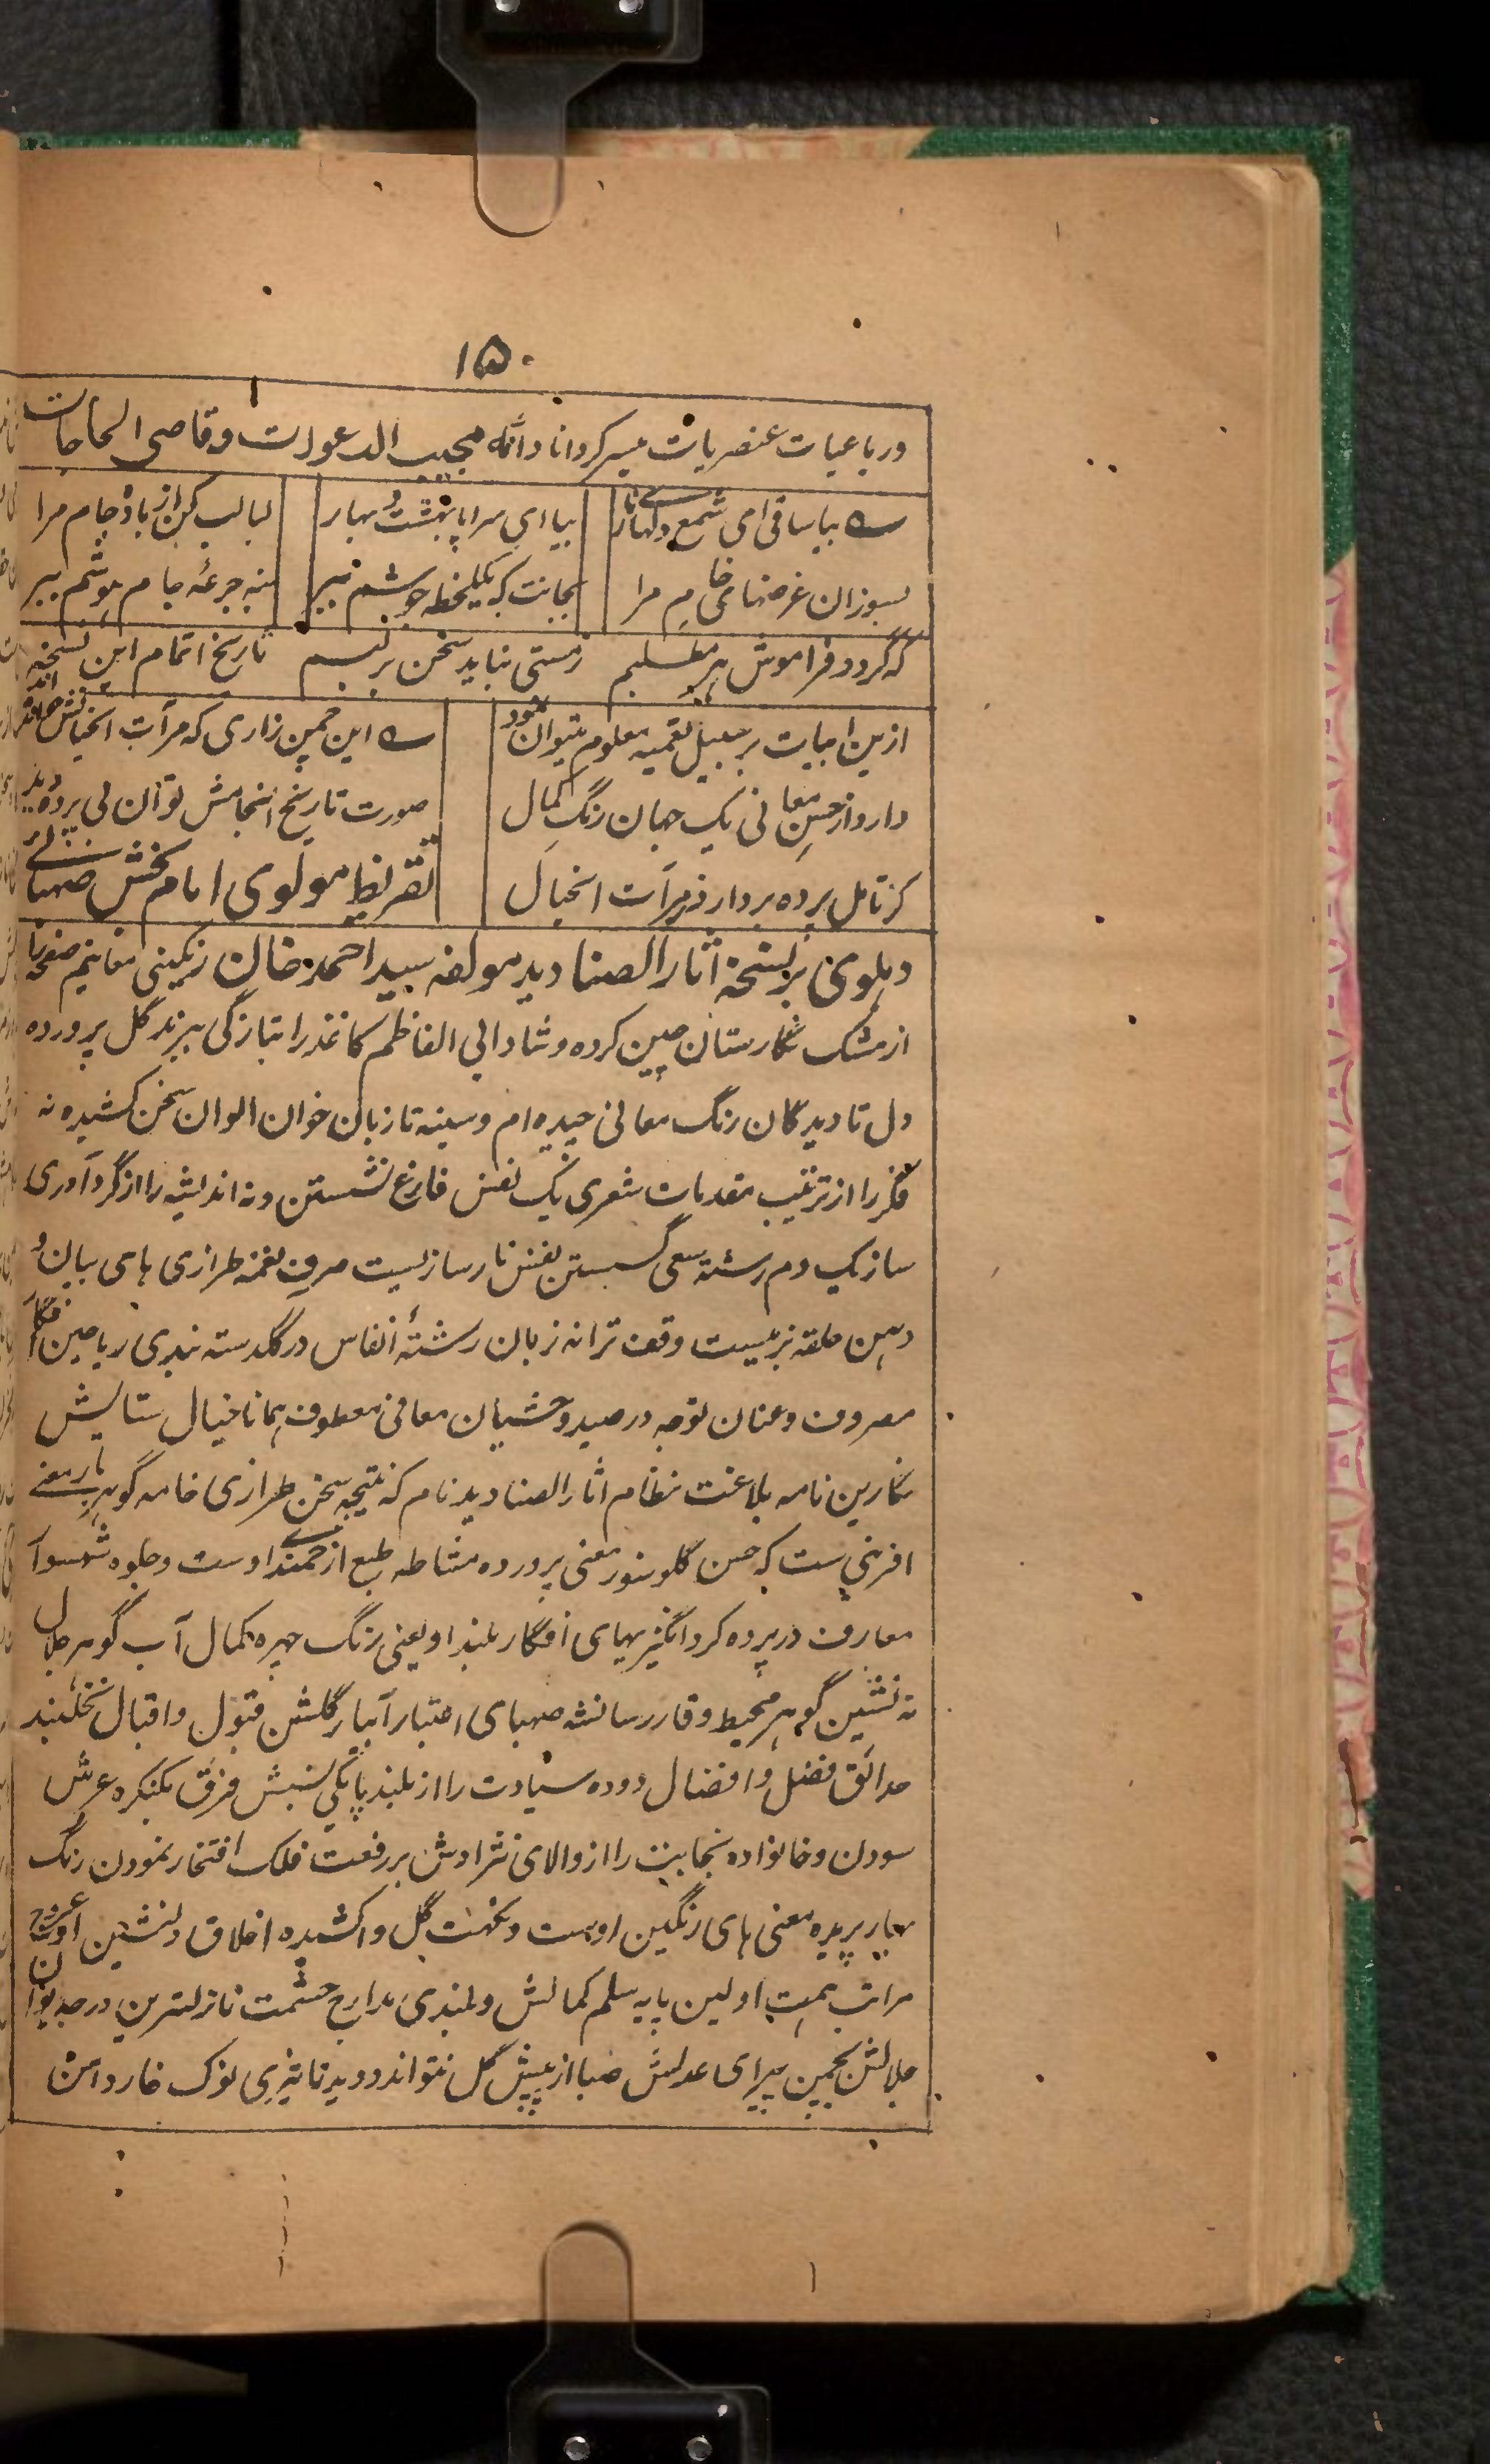 ۱۵۰
ورباعیات عنصریات میسر کرداناد اللہ مجیب الدعوات وقاضی الحاجات
بیا ساقی ای شمع دلهای تار بیا ای سراپا بهشت و بهار لبالب کن از باده جام مرا
بسوزان غرضهای خام مرا بجانت که یکلحظه جوشم ببر بنه جرعه جام هوشم ببر
که گردد فراموش هر مطلبم ز مستی نیاید سخن بر لبم تاریخ اتمام این نسخه
ازین ابیات برسبیل تعمیه معلوم میتوان نمود این چمن زاری که مرآت الخیالش
دارد از حسن معانی یک جهان رنگ کمال صورت تاریخ انجامش توان بی پرده دید
کز تامل پرده بردارد ز مرآت الخیال تقریظ مولوی امام بخش صهبائی
دہلوی بر نسخہ آثار الصنادید مولفہ سید احمد خان رنگینی مفاہیم صفحہ را
از مشک نگارستان چین کرده و شادابی الفاظم کاغذ را بتازگی ببرند گل پرورده
دل تا دیدگان رنگ معانی چیده ام و سینه تا زبان خوان الوان سخن کشیده نه
فکر را از ترتیب مقدمات شعری یک نفس فارغ نشستن و نه اندیشه را از گردآوری
ساز یک دم رشته سعی گسستن نفس نارسا زلیست صرف نغمه طرازی های بیان و
دہن حلقه بزمیست وقف ترانه زبان رشتۂ انفاس در گلدسته بندی ریاحین افکار
مصروف و عنان توجه در صید وحشیان معانی معطوف همانا خیال ستایش
نگارین نامه بلاغت نظام آثار الصنادید نام که نتیجه سخن طرازی خامه گوهر بار معنی
آفرینی ست که حسن گلوسوز معنی پرورده مشاطه طبع ارجمند اوست و جلوه شهسوار
معارف در پرده گرد انگیزیهای افکار بلند او یعنی رنگ چهره کمال آب گوهر جلال
ته نشین گوهر محیط وقار رسا نشه صهبای اعتبار آبیار گلشن قبول و اقبال نخلبند
حدائق فضل و افضال دوده سیادت را از بلند پایگی نسبش فرق بکنگره عرش
سودن و خانواده نجابت را از والای نژادش بر رفعت فلک افتخار نمودن رنگ
بهار پریده معنی های رنگین اوست و نکهت گل واکشیده اخلاق دلنشین او
مراتب همت اولین پایه سلم کمالش و بلندی مدارج حشمت نازلترین درجه ایوان
جلالش بچمن پیرای عدلش صبا از پیش گل نتواند دوید تا تیزی نوک خار دامن